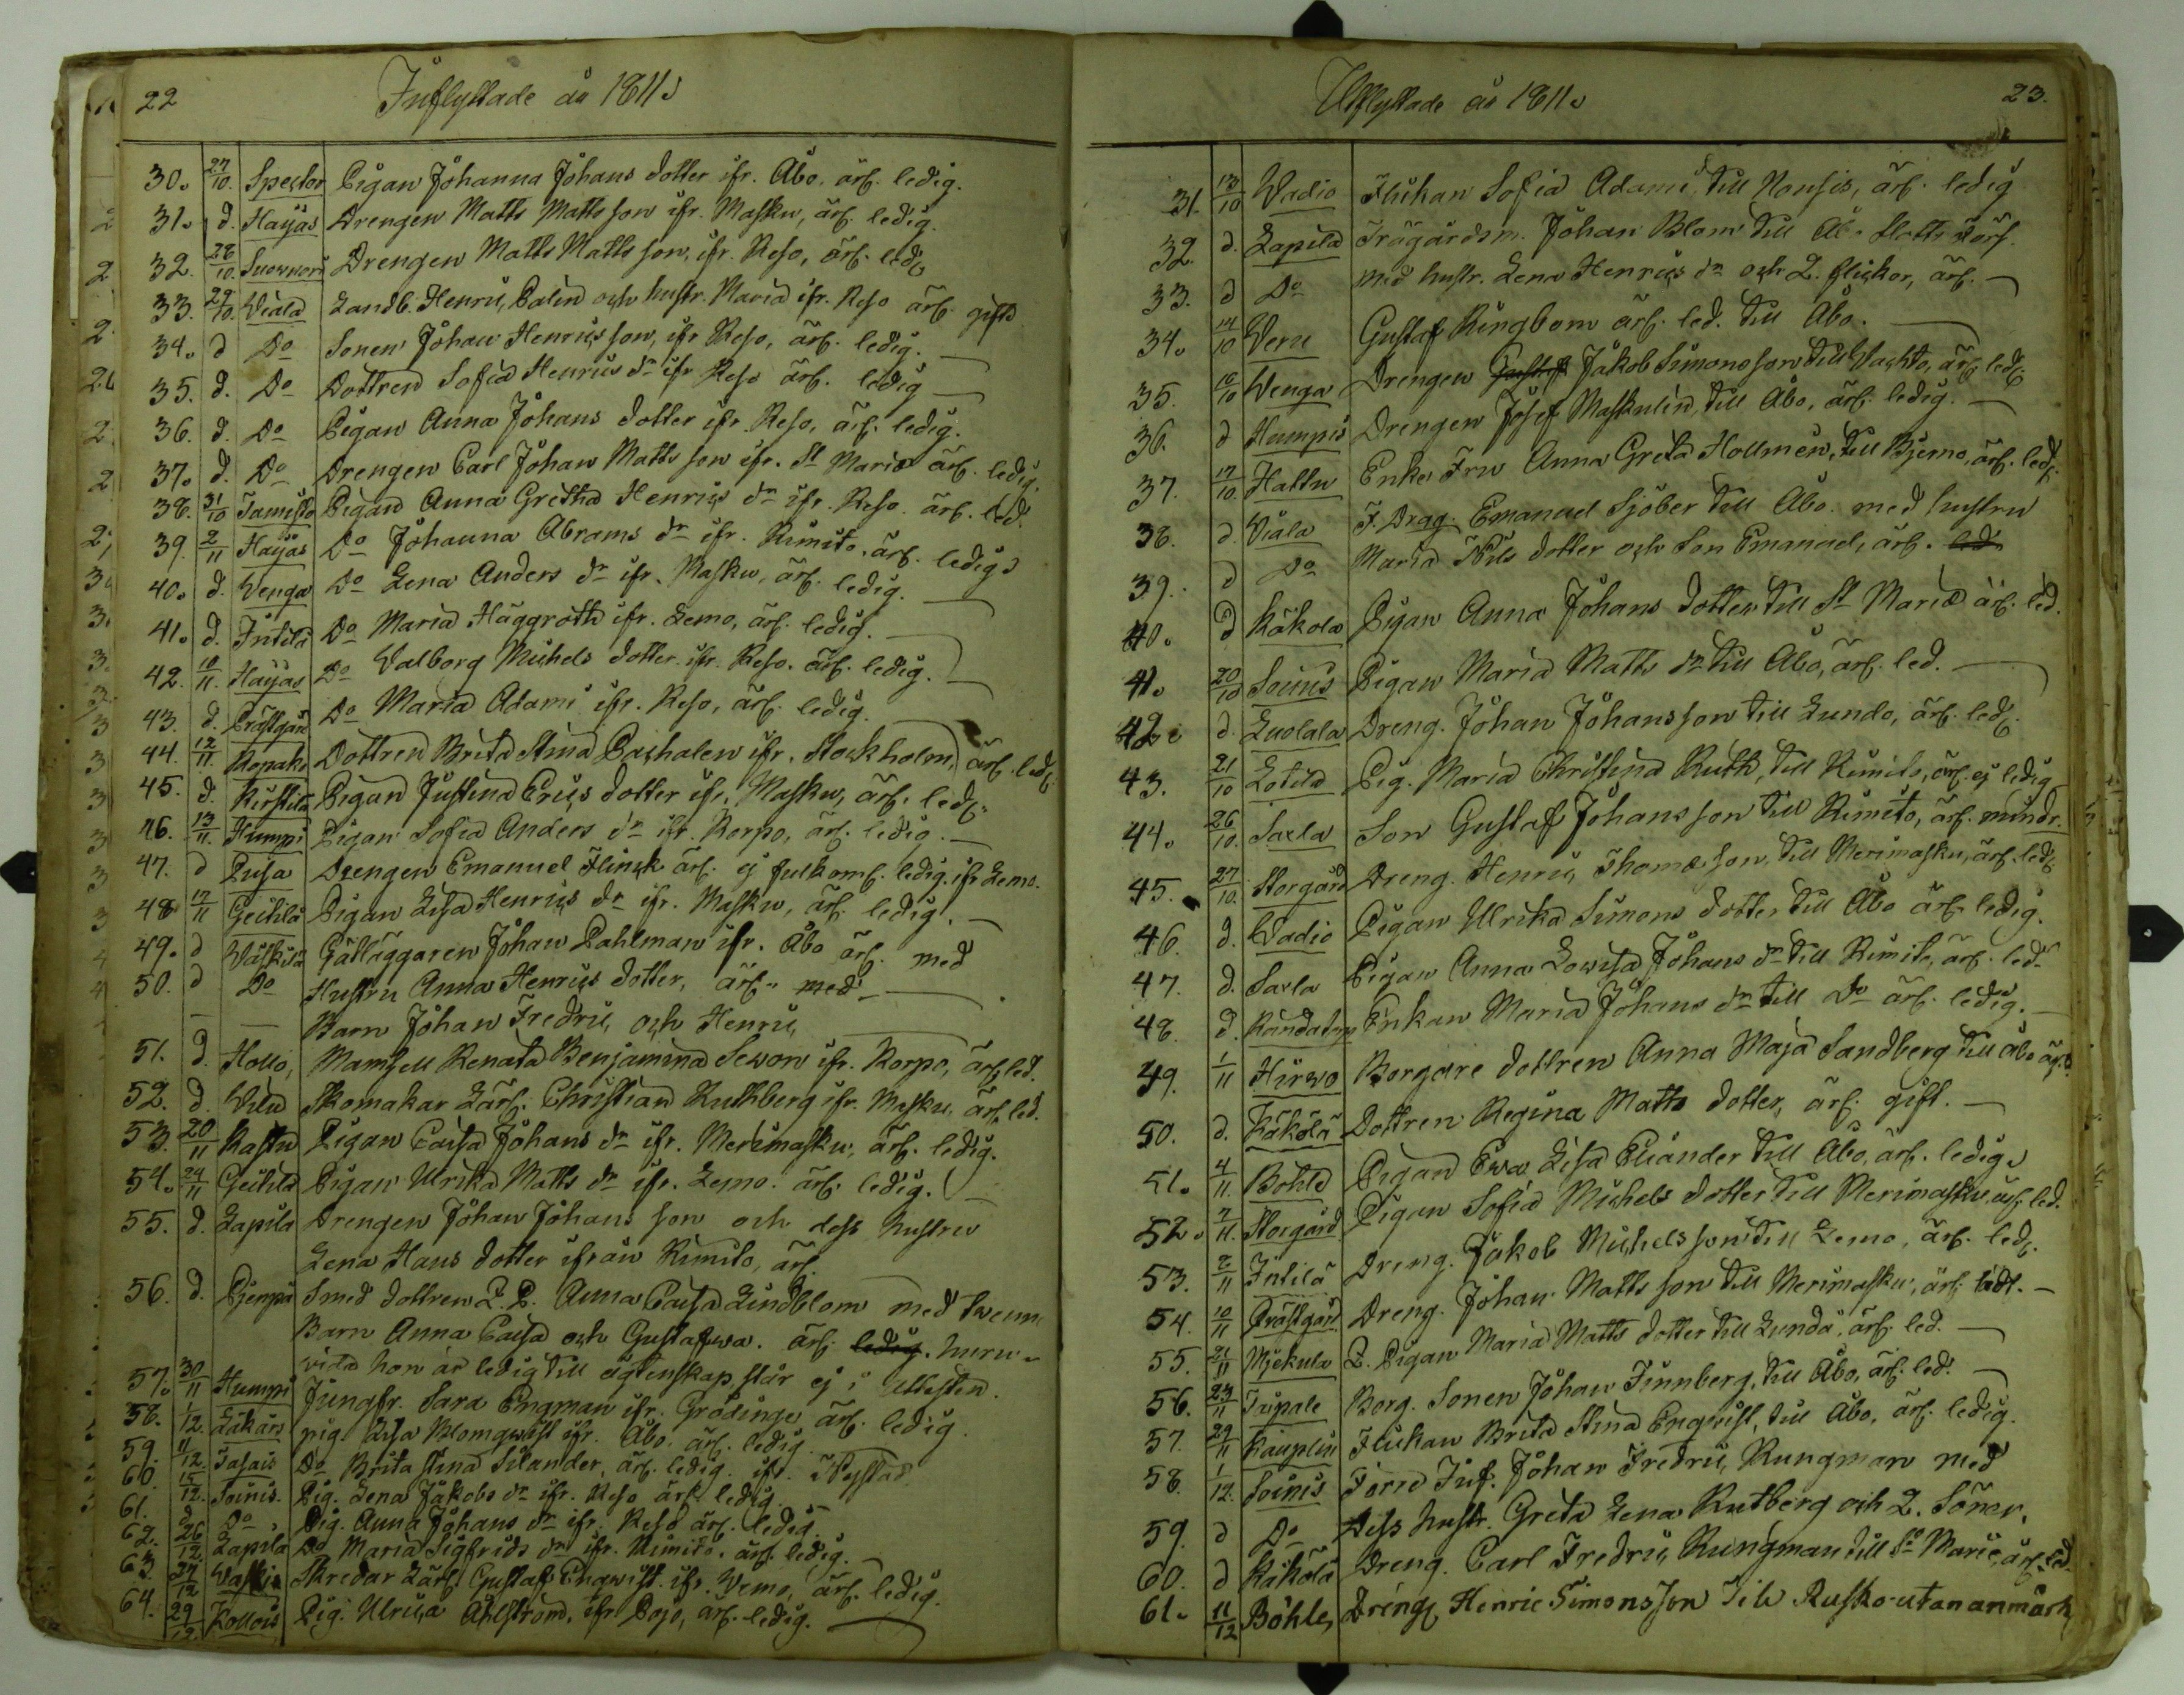 22
Inflyttade år 1811.
30. 27/10. Spector Pigan Johanna Johans dotter ifr. Åbo, ärl. ledig.
31. d. Haijas Drengen Matts Matts son ifr. Masku, ärl. ledig.
32. 28/10. Drengen Matts Matts son, ifr. Reso, ärl. led.
33. 29/10. Viala Landb. Henric Palin och hustr. Maria ifr. Reso ärl. gifta
34. d Do Sonen Johan Henrics son, ifr Reso, ärl. ledig.
35. d. Do Dottren Sofia Henrics dr ifr Reso ärl. ledig
36. d. Do Pigan Anna Johans dotter ifr. Reso, ärl. ledig.
37. d. Do Drengen Carl Johan Matts son ifr. St Mariæ ärl. ledig.
38. 31/10 Tamisto Pigan Anna Gretha Henrics dr ifr. Reso. ärl. led.
39. 2/11 Haijas Do Johanna Abrams dr ifr. Rimito, ärl. ledig.
40. d. Wenga Do Lena Anders dr ifr. Masku, ärl. ledig.
41. d. Intilä Do Maria Häggroth ifr. Lemo, ärl. ledig.
42. 10/11. Haijas Do Walborg Michels dotter ifr. Reso. ärl. ledig.
43. d. Prästgår Do Maria Adami ifr. Reso, ärl. ledig.
44. 12/11. Dottren Brita Stina Paschalen ifr. Stockholm, ärl. led.
45. d. Kirstila Pigan Justina Erics dotter ifr. Masku, ärl. led.
46. 13/11. Humpi Pigan Sofia Anders dr ifr. Korpo, ärl. ledig.
47. d Drengen Emanuel Flinck ärl. ej fulkoml. ledig. ifr Lemo.
48 17/11 Geitilä Pigan Lisa Henrics dr ifr. Masku, ärl. ledig.
49. d Wäskilä Johan Pahlman ifr. Åbo ärl. med
50. d Do Hustru Anna Henrics dotter, ärl. med
Barn Johan Fredric, och Henric,
51. d. Hollo, Mamsell Renata Benjamina Sewon ifr. Korpo, ärl. led.
52. d. Skomakar Lärl. Christian Ruthberg ifr. Masku. ärl. led.
53. 20/11 Kastu Pigan Caisa Johans dr ifr. Merimasku, ärl. ledig.
54. 24/11 Geitila Pigan Ulrika Matts dr ifr. Lemo. ärl. ledig.
55. d. Lapila Drengen Johan Johans son och dess hustru
Lena Hans dotter ifrån Rimito, ärl.
56. d. Smed dottren Anna Caisa Lindblom med twenn
Barn Anna Caisa och Gustafwa. ärl. ledig. huru-
vida hon är ledig till ägtenskap står ej i attesten.
57. 30/11 Humpi Jungfr. Sara Engman ifr. Grödinge ärl. ledig.
58. 1/12. pig. Lisa Blomqwist ifr. Åbo. ärl. ledig.
59. 11/12. Do Brita Stina Silander, ärl. ledig. ifr. Nystad
60. 15/12. Soinis. Pig. Lena Jakobs dr ifr. Reso ärl ledig.
61. d Do, Pig. Anna Johans dr ifr. Reso ärl. ledig.
62. 26/12. Lapila Do Maria Sigfrids dr ifr. Rimito. ärl. ledig.
63. 27/12 Skredar Lärl. Gustaf Engwist. ifr. Wemo, ärl. ledig.
64. 29/12. Pig. Ulrica Ahlström, ifr Pojo, ärl. ledig.
Utflyttade år 1811.
23.
31. 13/10 Wadio Flickan Sofia Adami, till Nousis, ärl. ledig
32. d. Lapila Trägårdsm. Johan Blom till Åbo Slotts
33. d Do med hustr. Lena Henrics dr och 2. flickor, ärl.
34. 14/10 Veru Gustaf Ringbom ärl. led. till Åbo.
35. 16/10 Wenga Drengen Gustaf Jakob Simonsson till ärl led.
36. d Humpis Drengen Josef Maskulin, till Åbo, ärl. ledig.
37. 17/10. Hattu Enke Fru Anna Greta Hollmén, till Bjerno, ärl. led.
38. d. Viala F. Drag. Emanuel Sjöber till Åbo. med hustru
39. d Do Maria Nils dotter och Son Emanuel, ärl. led
40. d Käkola Pigan Anna Johans dotter till St Mariæ ärl. led.
41. 20/10 Soinis Pigan Maria Matts dr till Åbo, ärl. led.
42. d. Luolala Dreng. Johan Johansson till Lundo, ärl. led.
43. 21/10 Lotila Pig. Maria Christina Ruth, till Rimito, ärl. ej ledig
44. 26/10. Saela Son Gustaf Johansson till Rimito, ärl. mindr.
45. 27/10. Storgård Dreng. Henric Thomæson, till Merimasku, ärl. led.
46. d. Wadio Pigan Ulrika Simons dotter till Åbo ärl. ledig.
47. d. Saela Pigan Anna Lowisa Johans dr till Rimito, ärl. led.
48. d. Enkan Maria Johans dr till Do ärl. ledig.
49. 1/11 Hirwo Borgare dottren Anna Maja Sandberg till Åbo
50. d. Käkölä Dottren Regina Matts dotter, ärl. gift.
51. 4/11. Böhle Pigan Ewa Lisa Eliander till Åbo, ärl. ledig.
52. 7/11. Storgård Pigan Sofia Michels dotter till Merimasku ärl. led.
53. 8/11 Intilä Dreng. Jakob Michelsson till Lemo, ärl. led.
54. 10/11 Prästgår Dreng. Johan Matts son till Merimasku, ärl.
55. 21/11 Pigan Maria Matts dotter till Lundo, ärl. led.
56. 23/11 Taipale Borg. Sonen Johan Finnberg, till Åbo, ärl. led.
57. 29/11 Kauplin Flickan Brita Stina Engwist, till Åbo, ärl. ledig.
58. 1/12. Soinis Johan Fredric Rungman med
59. d Do Dess hustr. Greta Lena Rutberg och 2. Söner.
60. d Käkölä Dreng. Carl Fredric Rungman till St Marie, ärl. led.
61. 11/12 Böhle, Dreng. Henric Simonsson Till Rusko utan anmärk